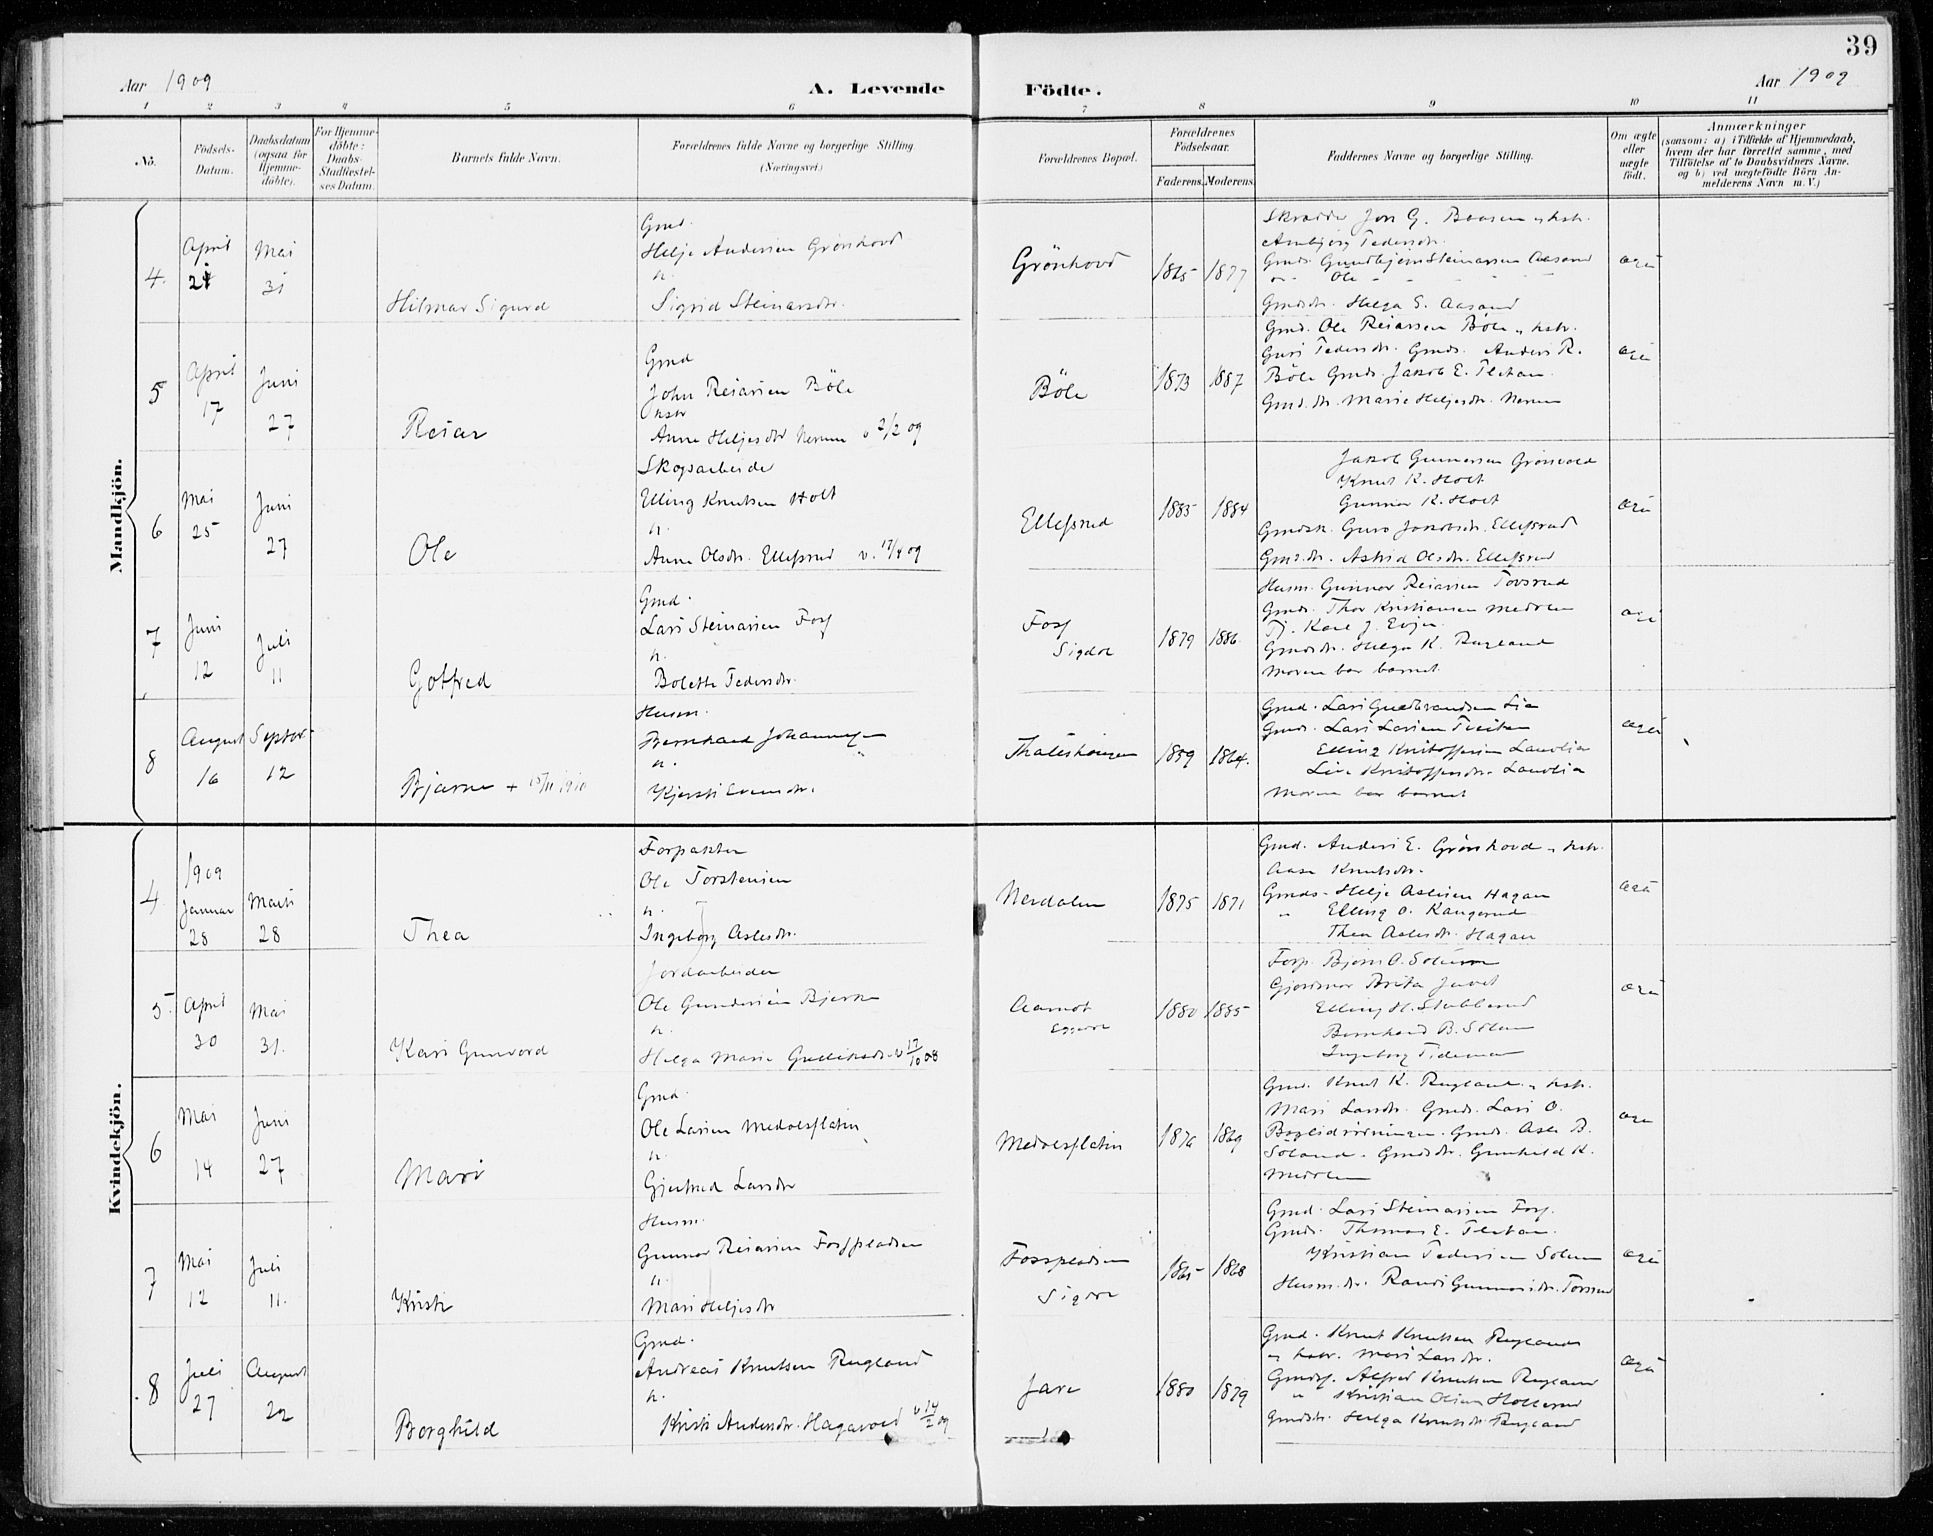 39
Aar 1909
A. Levende Födte.
Aar 1909
1 2 3 4 5 6 7 8 9 10 11
No.
Födsels-Datum.
Daabsdatum (ogsaa for Hjemme-döbte).
For Hjemme-döbte: Daabs-Stadfæstel-ses Datum.
Barnets fulde Navn.
Forældrenes fulde Navne og borgerlige Stilling. (Næringsvei.)
Forældrenes Bopæl.
Forældrenes Födselsaar.
Faderens. Moderens.
Faddernes Navne og borgerlige Stilling.
Om ægte eller uægte födt.
Anmærkninger
(saasom: a) i Tilfælde af Hjemmedaab, hvem der har forrettet samme, med Tilföielse af to Daabsvidners Navne. og b) ved uægtefödte Börn An-melderens Navn m. V.)
Mandkjön.
4.
April
Mai
31
Hilmar Sigurd
Gmd.
Helje Andersen Grönhovd
h.
Sigrid Steinarsdtr.
Grönhovd
1865 1877
Skrædder Jon G. hstr.
Gmds. Steinarsen Aasand
Ole
Gmdsdtr. Helga S. Aasand
5
April
17
Juni
27
Reiar
Gmd
John Reiarsen Böle
hstr
Anna Heljesdtr Nerum v 2/2 09
Böle
1873 1887
Gmd. Ole Reiarsen Böle og hstr.
Guri Tedersdtr. Gmds. Anders R.
Böle Gmds. Jakob E. Fletan
Gmd. dtr. Marie Heljesdtr. Nerum
6
Mai
25
Juni
27
Ole
Skogsarbeider
Elling Knutsen Holt
h.
Anne Olsdtr. Ellefsrud v. 17/4 09
Ellefsrud
1885 1884
Jakob Gunnarsen Grönvold
Knut K. Holt
Gunnar K. Holt
Gmdsk. Guro Jakobsdtr. Ellefsrud
Gmds.dtr. Astrid Olsdtr. Ellefsrud
7
Juni
12
Juli
11
Gotfred
Gmd.
Lars Steinarsen Foss
h.
Bolette Tedersdtr.
Foss
Sigdal
1879 1886.
Husm. Gunnar Reiarsen Torsrud
Gmds. Thor Kristiansen Medalen
Tj. Karl J. Evju
Gmdsdtr. Helga K. Rugland
Moren bar barnet
8
August
16
Septbr.
12
Bjarne + 15/11 1910
Husm.
Bernhard Johannesen
h.
Kjersti Evensdtr.
Thaleshaugen
1859 1864.
Gmd. Lars Gudbrandsen Lia
Gmds. Lars Larsen
Elling Kristoffersen Lauvlia
Live Kristoffersdtr. Lauvlia
Moren bar barnet
Kvindekjön.
4
1909
Januar
28
Marts
28
Thea
Forpakter
Ole Torstensen
h.
Ingeborg Aslesdtr.
Nerdalen
1875 1871
Gmd. Anders E. Grönhovd og hstr.
Aase Knutsdtr.
Gmds. Helje Aslesen Hagan
" Elling O. Kangerud
Thea Aslesdtr. Hagan
5
April
30
Mai
31.
Kari Gunvord
Jordarbeider
Ole Gundersen Bjerke
h.
Helga Marie v 17/10 08
Aamot
Eggedal
1880 1885
Forp. Bjørn O. Solum
Gjordmor Brita Juvet
Elling H. Stubberud
Bernhard B. Solum
Ingeborg Tideman
6
Mai
14
Juni
27
Mari
Gmd.
Ole Larsen Medalsflatin
h.
Gjertrud Larsdtr
Medalsflatin
1876 1869
Gmd. Knut K. Rugland og hstr.
Mari Larsdtr. Gmds. Lars O.
Gmds. Asle B.
Gmdsdtr. Gunhild K.
Medalen
7
Mai
12
Juli
11.
Kristi
Husm.
Gunnar Reiarsen Fosspladsen
h.
Mari Heljesdtr
Fosspladsen
Sigdal
1865 1868
Gmd. Lars Steinarsen Foss.
Gmds. Thomas E. Fletan.
Kristian Tedersen Solum
Husm.dtr. Randi Gunnarsdtr. Torsrud
8
Juli
27
August
22
Borghild
Gmd.
Andreas Knutsen Rugland
h.
Kristi Andersdtr. Hagavold v 14/2 09
Jare
1880 1879
Gmd. Knut Knutsen Rugland
og hstr. Mari Larsdtr.
Gmds. Alfred Knutsen Rugland
" Kristian Olsen Hollerud
Gmdsdtr. Helga Knutsdtr Rugland